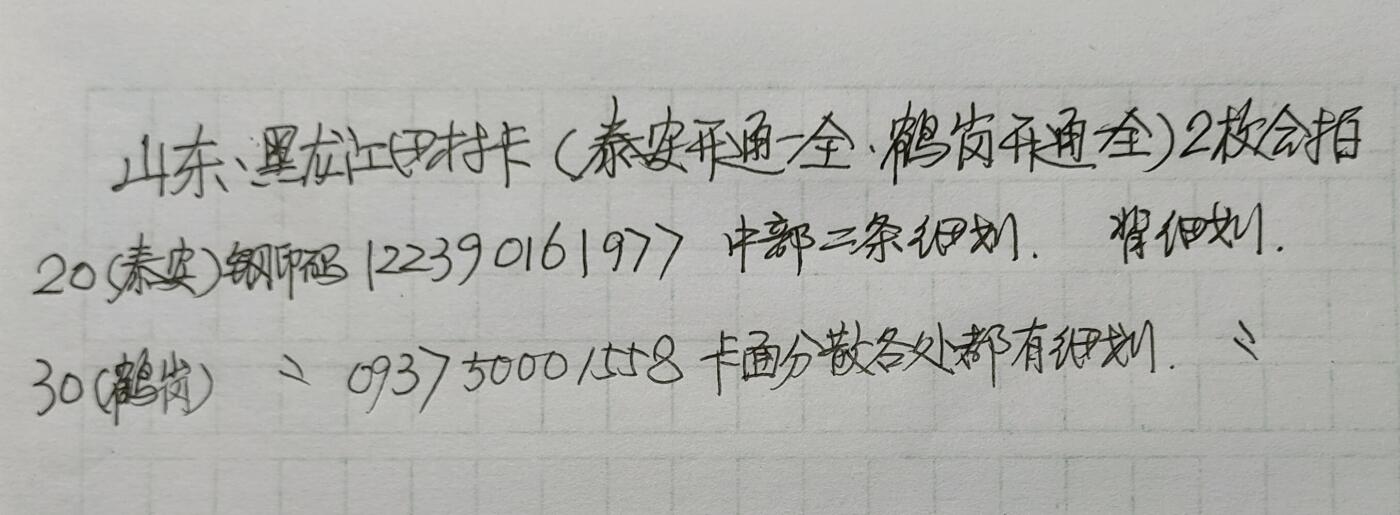 山东、黑龙江田村卡（泰安开通一全、鹤岗开通一全）2枚合拍
20（泰安）钢印码 122390161977 中部二条细划. 背细划.
30（鹤岗） 〃 093750001558 卡面分散各处都有细划. 〃